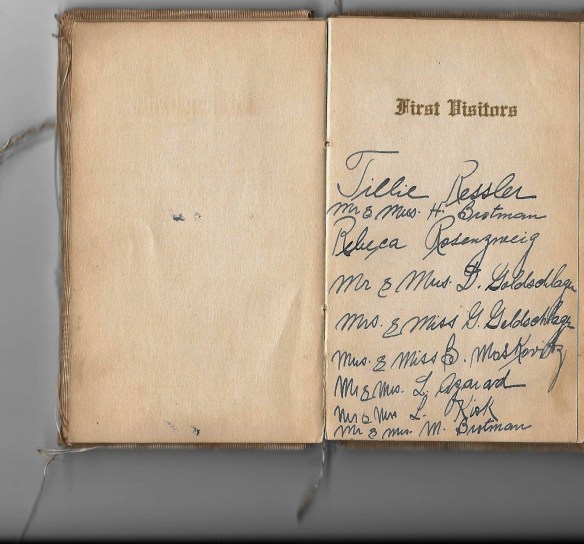 First Visitors
Tillie Ressler
Mr & Miss. H. Brotman
Rebeca Rosenzweig
Mr & Mrs. D. Goldschlager
Mrs. & Miss G. Goldschlager
Mrs. & Miss B. Moskovitz
Mr & Mrs. L. Azarad
Mr & Mrs L. Kirk
Mr & Mrs. M. Brotman